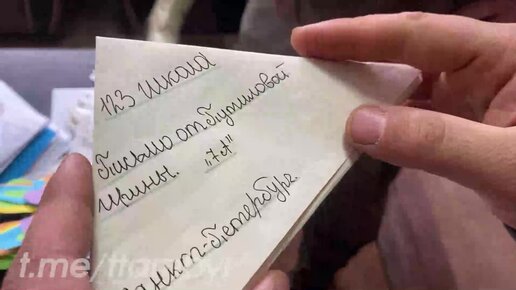 123 Школа
Письмо от Путиловой
Ирины. "7А"
Санкт-Петербург.
t.me/